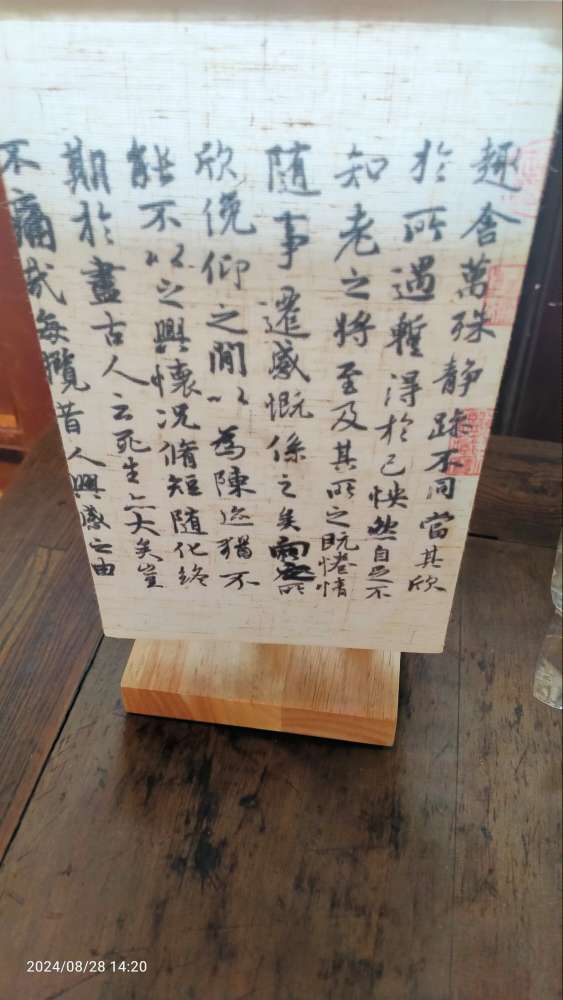 趣舍萬殊静躁不同當其欣
於所遇暫得於己怏然自足不
知老之將至及其所之既惓情
随事遷感慨係之矣向之所
欣俛仰之閒以為陳迹猶不
能不以之興懷況脩短随化終
期於盡古人云死生亦大矣豈
不痛哉每攬昔人興感之由
2024/08/28 14:20